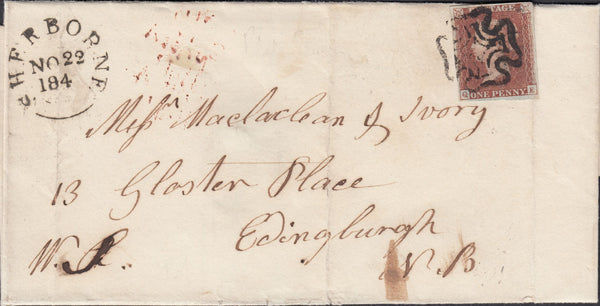 SHERBORNE
NO 22
184
POSTAGE
ONE PENNY
Miss Maclaclean of Ivory
13 Gloster Place
Edingburgh
N.B